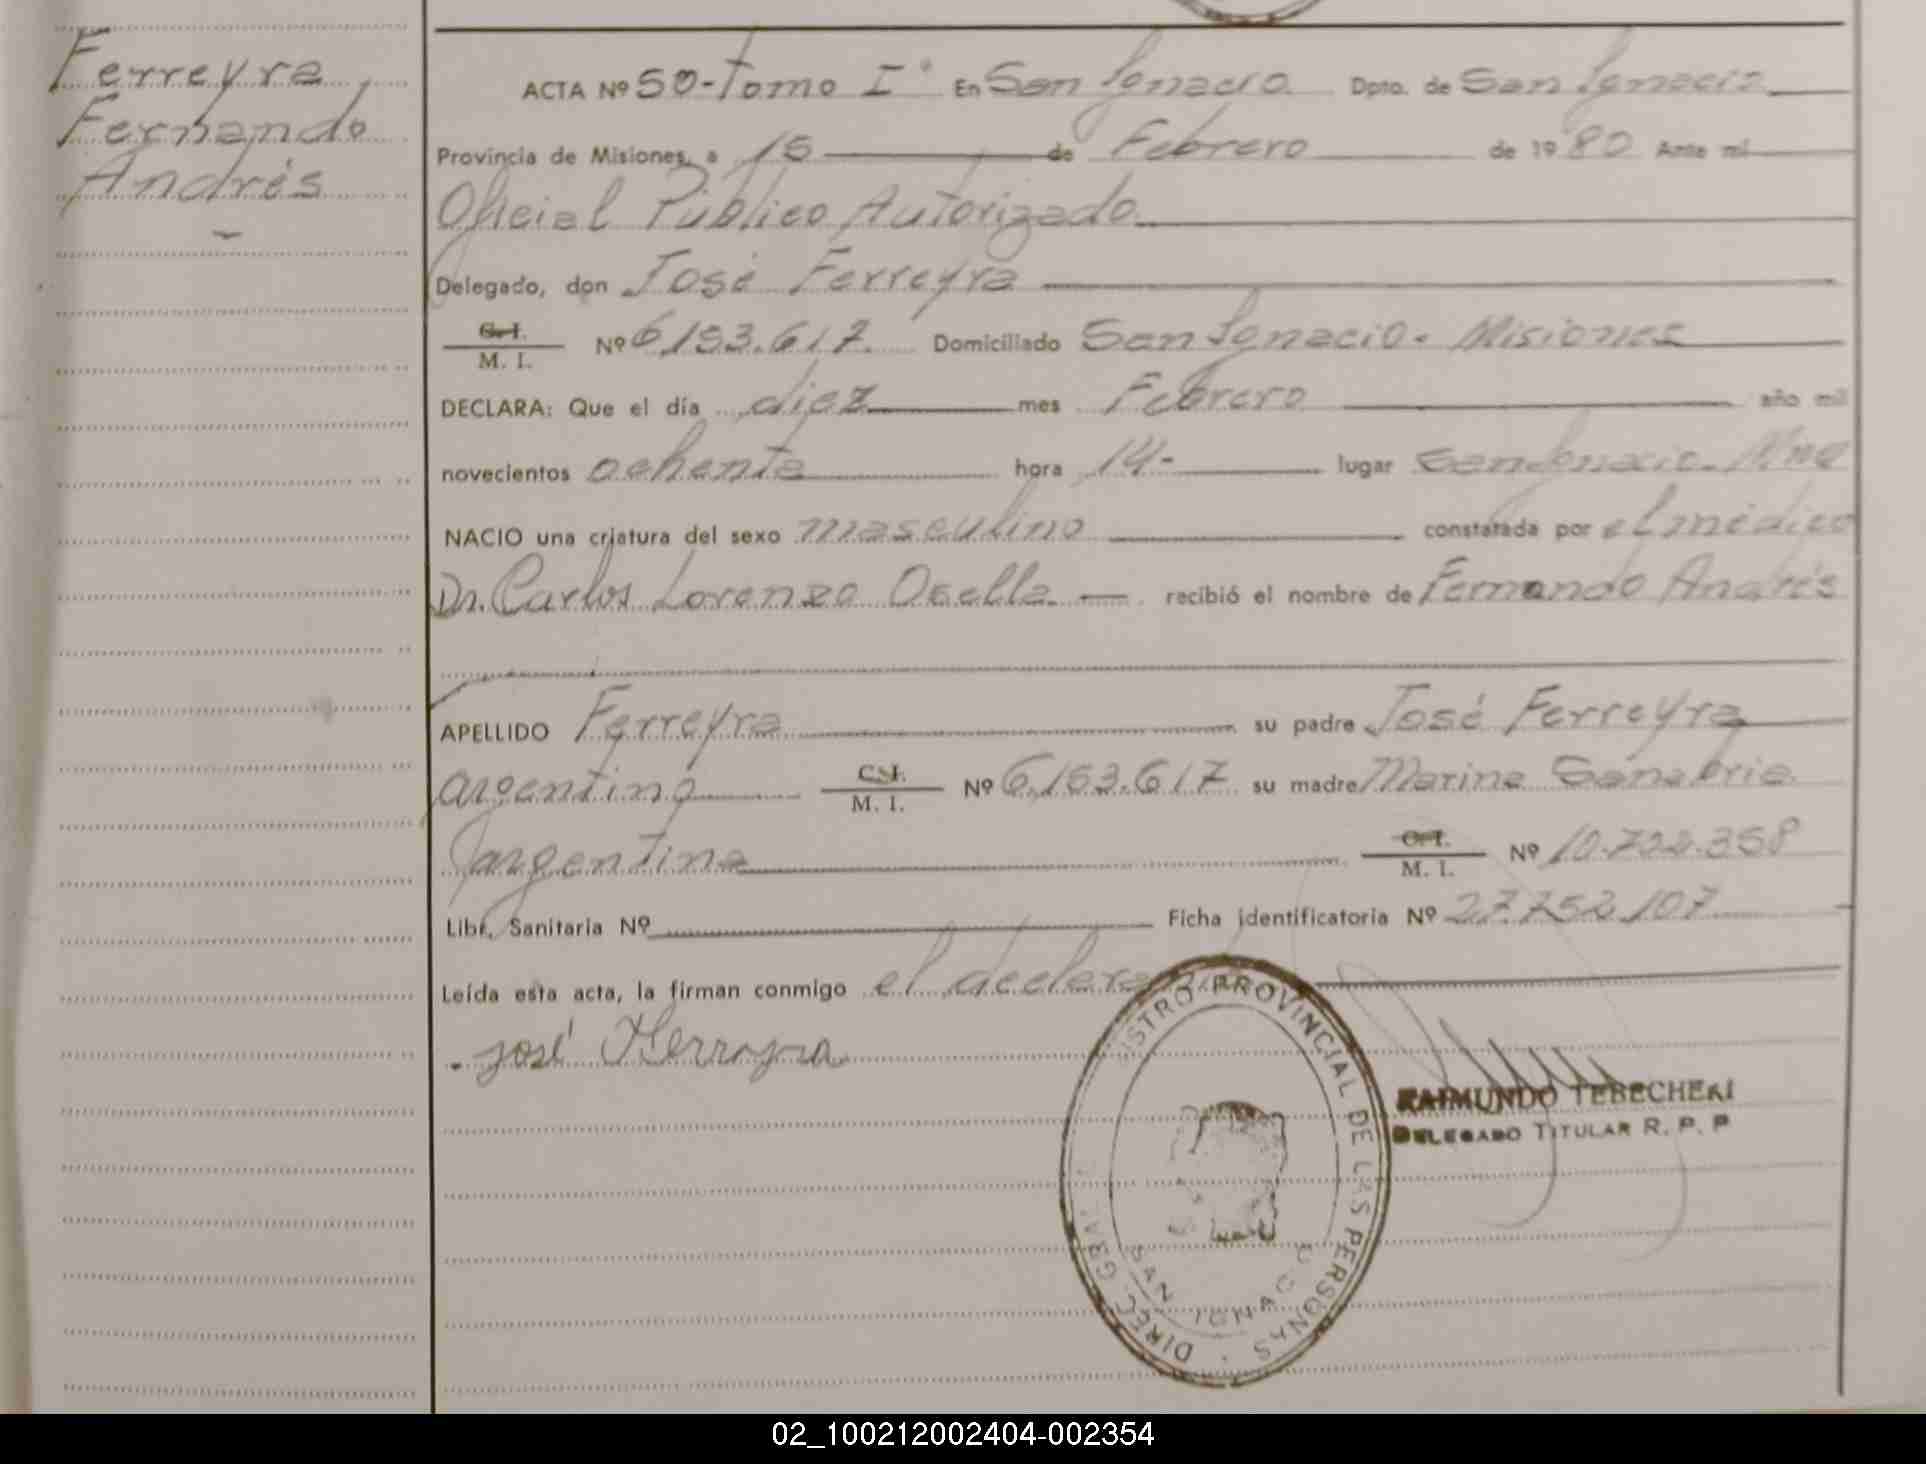 Ferreyra
Fernando
Andrés
ACTA Nº 50-Tomo Iº En San Ignacio Dpto. de San Ignacio
Provincia de Misiones, a 15 de Febrero de 1980 Ante mi
Oficial Público Autorizado
Delegado, don José Ferreyra
C. I.
M. I. Nº 6.153.617. Domiciliado San Ignacio. Misiones
DECLARA: Que el día diez mes Febrero año mil
novecientos ochenta hora 14- lugar San Ignacio. Mnes
NACIO una criatura del sexo masculino constatada por el médico
Dr. Carlos Lorenzo Osella recibió el nombre de Fernando Andrés
APELLIDO Ferreyra su padre José Ferreyra
argentino C. I.
M. I. Nº 6.153.617 su madre Marina Sanabria
argentina C. I.
M. I. Nº 10.702.358
Libr. Sanitaria Nº Ficha identificatoria Nº 27.752.107
Leída esta acta, la firman conmigo el declarante
José Ferreyra
RAIMUNDO TEBECHERI
DELEGADO TITULAR R. P. P
PROVINCIAL DE LAS PERSONAS
SAN IGNACIO
02_100212002404-002354